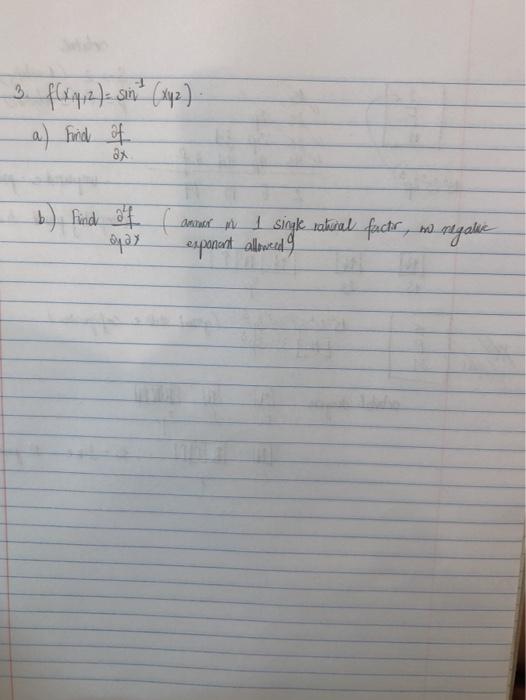 3. f(x,y,z) = sin⁻¹ (xyz).
a) Find ∂f/∂x.
b) Find ∂²f/∂y∂x ( answer in 1 single rational factor, no negative
exponent allowed)